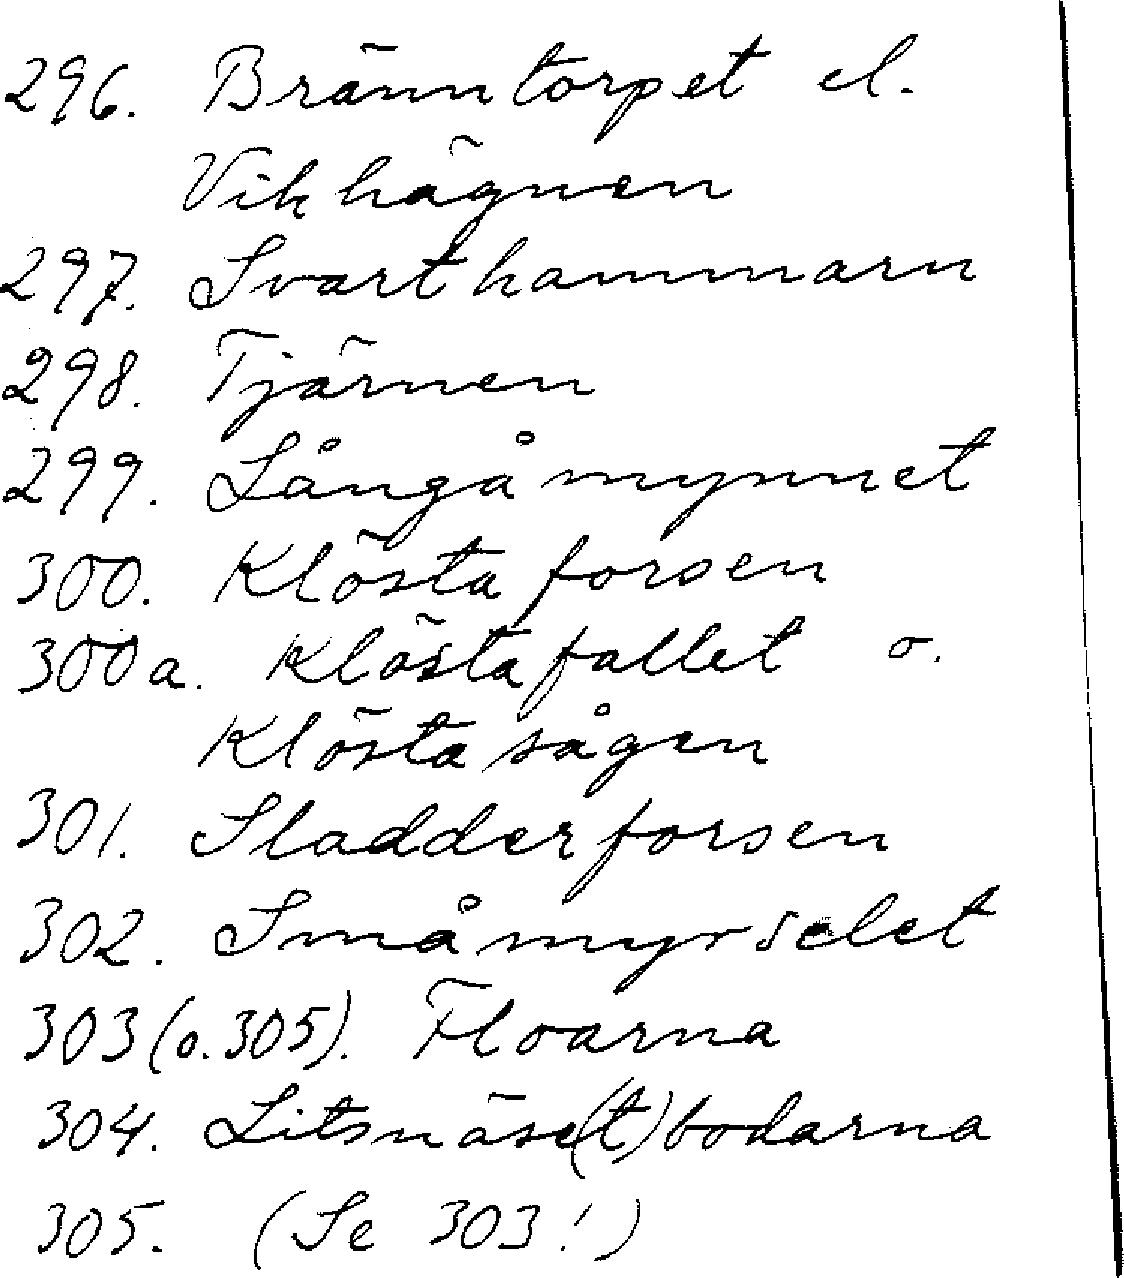 296. Bränntorpet el.
Vikhägnen
297. Svarthammarn
298. Tjärnen
299. Långåmynnet
300. Klöstaforsen
300a. Klöstafallet o.
Klöstasågen
301. Sladderforsen
302. Småmyrselet
303 (o. 305). Floarna
304. Litsnäse(t)bodarna
305. (Se 303!)